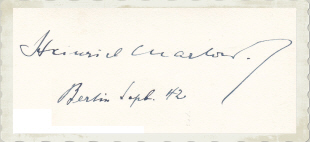 Heinrich Marlow.
Berlin Sept. 42